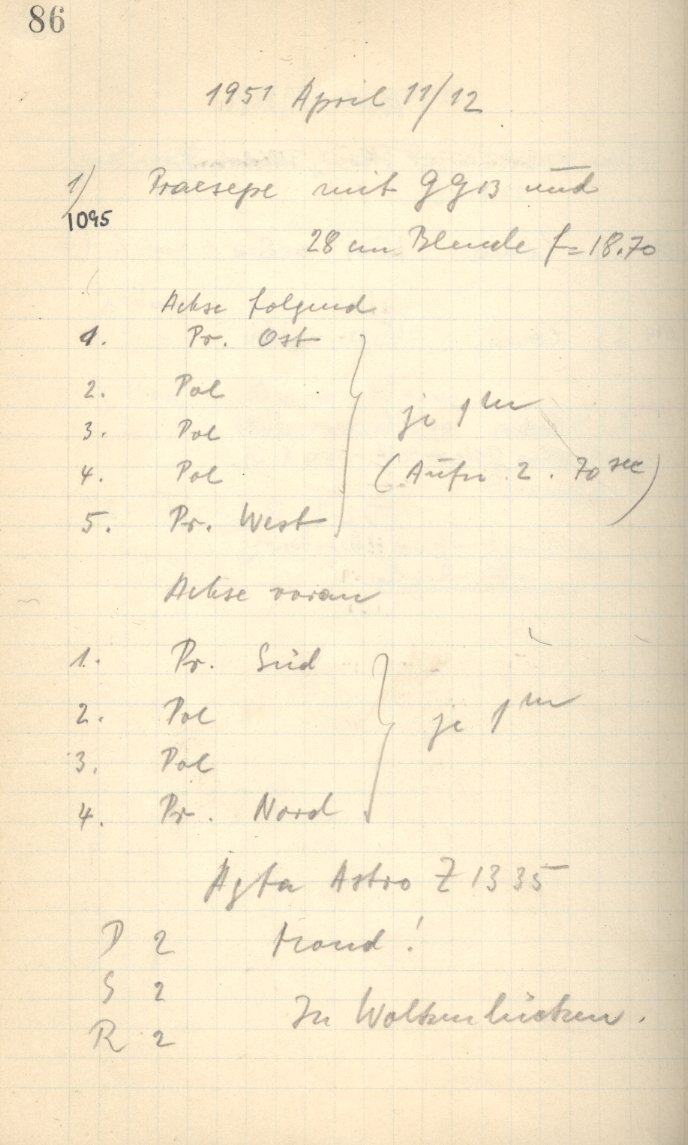 86
1951 April 11/12
1) Praesepe mit GG13 und
1095
28 cm Blende f=18.70
Achse folgend
1. Pr. Ost
2. Pol
3. Pol
je 1m
4. Pol
(Aufn 2. 70 sec)
5. Pr. West
Achse voran
1. Pr. Süd
2. Pol
je 1m
3. Pol
4. Pr. Nord
Agfa Astro Z 1335
D 2 Mond!
S 2
In Wolkenlücken.
R 2